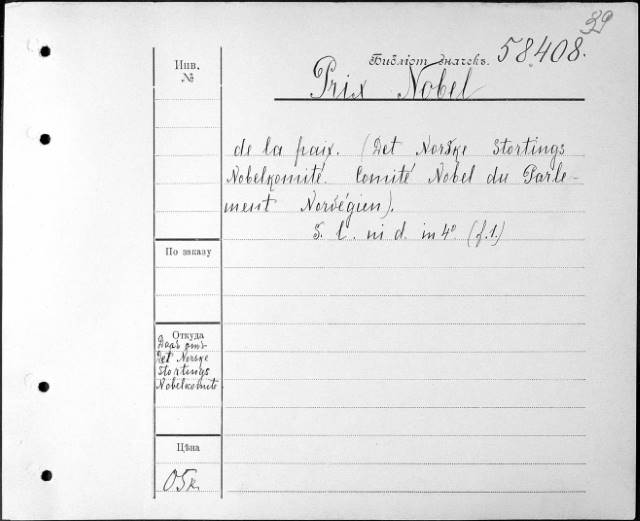 39
Инв.
№
Библіот. значекъ. 58.408.
Prix Nobel
de la paix. (Det Norske Stortings
Nobelkomité. Comité Nobel du Parle-
ment Norvégien).
S. l. ni d. in 4° (f.1.)
По заказу
Откуда
Даръ отъ
Det Norske
Stortings
Nobelkomité
Цѣна
05к.